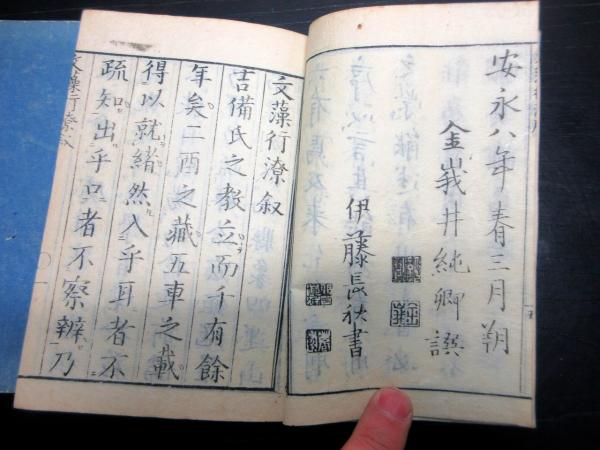 安永八年春三月朔
金峩井純卿譔
伊藤長秋書
文藻行潦叙
吉備氏之教立而千有餘
年矣二酉之藏五車之載
得以就緒然入乎耳者不
疏知出乎口者不察辨乃
文藻行潦